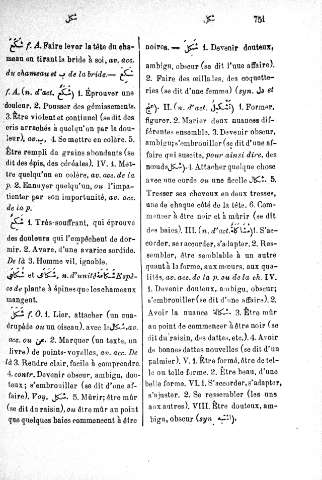 شكل
شكل
751
شَكَعَ f. A. Faire lever la tête du cha-
meau en tirant la bride à soi, av. acc.
du chameau et ب de la bride. — شَكِعَ
f. A. (n. d'act. شَكَعٌ) 1. Éprouver une
douleur. 2. Pousser des gémissements.
3. Être violent et continuel (se dit des
cris arrachés à quelqu'un par la dou-
leur), av. 4. Se mettre en colère. 5.
Être rempli de grains abondants (se
dit des épis, des céréales). IV. 1. Met-
tre quelqu'un en colère, av. acc. de la
p. 2. Ennuyer quelqu'un, ou l'impa-
tienter par son importunité, av. acc.
de la p.
شَكِعٌ 1. Très-souffrant, qui éprouve
des douleurs qui l'empêchent de dor-
mir. 2. Avare, d'une avarice sordide.
De là 3. Homme vil, ignoble.
شُكَاعٌ et شُكَاعَى, n. d'unité شُكَاعَاةٌ Espè-
ce de plante à épines que les chameaux
mangent.
شَكَلَ f. O. 1. Lier, attacher (un qua-
drupède ou un oiseau), avec le شكال, av.
acc. ou 2. Marquer (un texte, un
livre) de points-voyelles, av. acc. De
là 3. Rendre clair, facile à comprendre.
4. contr. Devenir obscur, ambigu, dou-
teux; s'embrouiller (se dit d'une af-
faire). Voy. شكل 5. Mûrir; être mûr
(se dit du raisin), ou être mûr au point
que quelques baies commencent à être
noires. — شَكِلَ 1. Devenir douteux,
ambigu, obscur (se dit d'une affaire).
2. Faire des œillades, des coquette-
ries (se dit d'une femme) (syn. دل et
). II. (n. d'act. تَشْكِيلٌ) 1. Former,
figurer. 2. Marier deux nuances dif-
férentes ensemble. 3. Devenir obscur,
ambigu; s'embrouiller (se dit d'une af-
faire qui suscite, pour ainsi dire, des
nœuds, شكل). 4. Attacher quelque chose
avec une corde ou une ficelle شكال. 5.
Tresser ses cheveux en deux tresses,
une de chaque côté de la tête. 6. Com-
mencer à être noir et à mûrir (se dit
des baies). III. (n. d'act. مُشَاكَلَةٌ) 1. S'ac-
corder, se raccorder, s'adapter. 2. Res-
sembler, être semblable à un autre
quant à la forme, aux mœurs, aux qua-
lités, av. acc. de la p. ou de la ch. IV.
1. Devenir douteux, ambigu, obscur;
s'embrouiller (se dit d'une affaire). 2.
Avoir la nuance شكلة. 3. Être mûr
au point de commencer à être noir (se
dit du raisin, des dattes, etc.). 4. Avoir
de bonnes dattes nouvelles (se dit d'un
palmier). V. 1. Être formé, être de tel-
le ou telle forme. 2. Être beau, d'une
belle forme. VI. 1. S'accorder, s'adapter,
s'ajuster. 2. Se ressembler (les uns
aux autres). VIII. Être douteux, am-
bigu, obscur (syn. اشتبه).